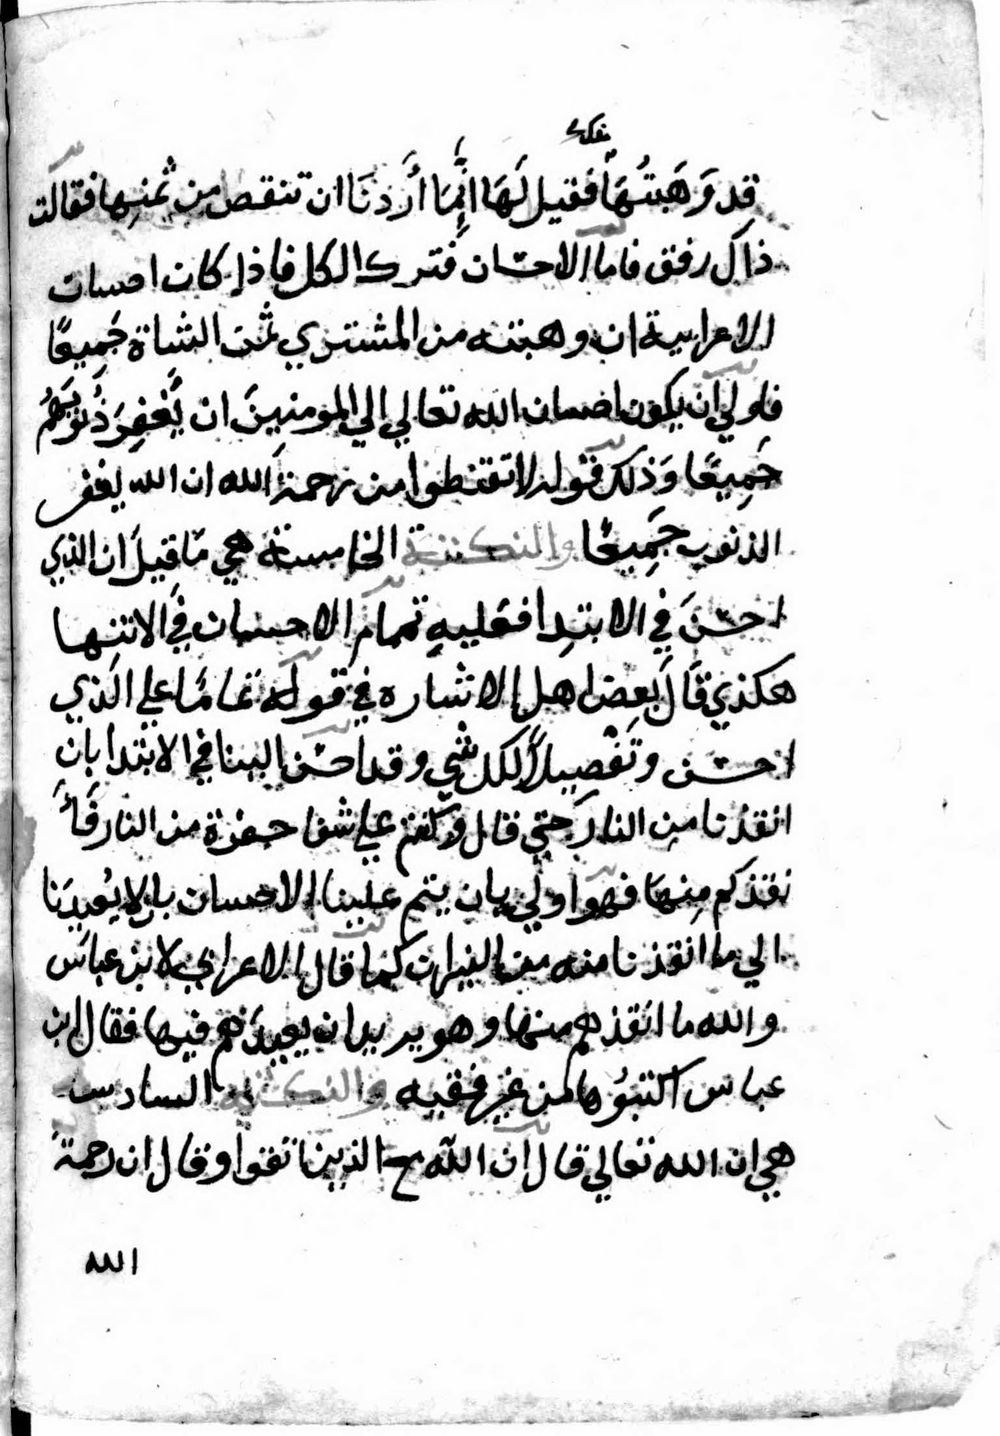 قد وَهَبتُهَا فقيل لَهَا إنَّمَا أَرَدْنَا ان تنقص من ثمنِها فقالت
ذاك رفق فاما الاحسان فترك الكل فاذا كان احسان
الاعرابية ان وهبته من المشتري ثمن الشاة جَمِيعًا
فاولي ان يكون احسان الله تعالي الي المومنينَ ان يَغْفِرَ ذُنوبَهُم
جَمِيعًا وَذلك قوله لا تقنطوا من رحمة الله ان الله يغفر
الذنوب جَمِيعًا والنكتة الخامسة هي مَا قيلَ ان الذي
احسَنَ في الابتدا فعليهِ تمام الاحسان في الانتها
هكذي قَالَ بعض اهل الاشاره في قوله تمامًا علي الذي
احسن وتَفْصِيلاً لكل شي وقد احسن الينا في الابتدا بان
انقذنا من النار حتي قال وكنتم علي شفا حفرة من النار فَأَ
نقذكم مِنهَا فهوَ اولي بان يتم علينا الاحسان بان لا يُعِيدَنا
الي ما انقذنا منه من النيران كما قال الاعرابي لابن عباس
والله ما انقذهم منها وهو يريد ان يعيدَهم فيها فقال ابن
عباس اكتبُوها من غير فقيه والنكتة السادسـ
هي ان الله تعالي قال ان الله مع الذين اتقوا وقال ان رحمةَ
الله